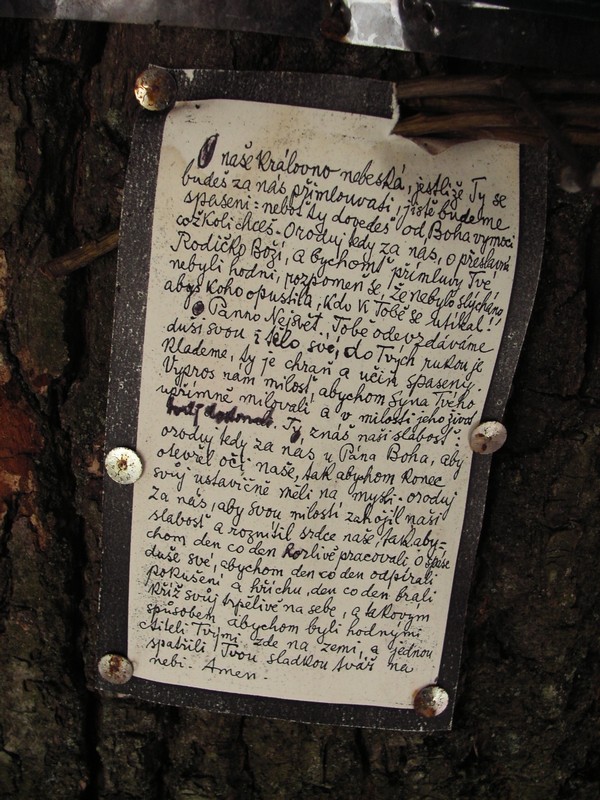 O naše Královno nebeská, jestliže Ty se
budeš za nás přimlouvati, jistě budeme
spaseni: neboť ty dovedeš od Boha vymoci
cožkoli chceš. Oroduj tedy za nás, o přeslavná
Rodičko Boží, a bychomť přímluvy Tvé
nebyli hodni, rozpomeň se že nebylo slýcháno,
abys koho opustila, kdo k Tobě se utíkal.
O Panno Nejsvět., Tobě odevzdáváme
duši svou i tělo své, do Tvých rukou je
klademe, ty je chraň a učiň spaseny.
Vypros nám milost, abychom Syna Tvého
upřímně milovali a v milosti jeho život
Ty, znáš naši slabost
oroduj tedy za nás u Pána Boha, aby
otevřel oči naše, tak abychom konec
svůj ustavičně měli na mysli. oroduj
za nás, aby svou milostí zahojil naši
slabost a roznítil srdce naše, tak aby-
chom den co den horlivě pracovali o spáse
duše své, abychom den co den odpírali
pokušení a hříchu, den co den brali
kříž svůj trpělivě na sebe, a takovým
způsobem abychom byli hodnými
ctiteli Tvými zde na zemi, a jednou
spatřili Tvou sladkou tvář na
nebi. Amen.